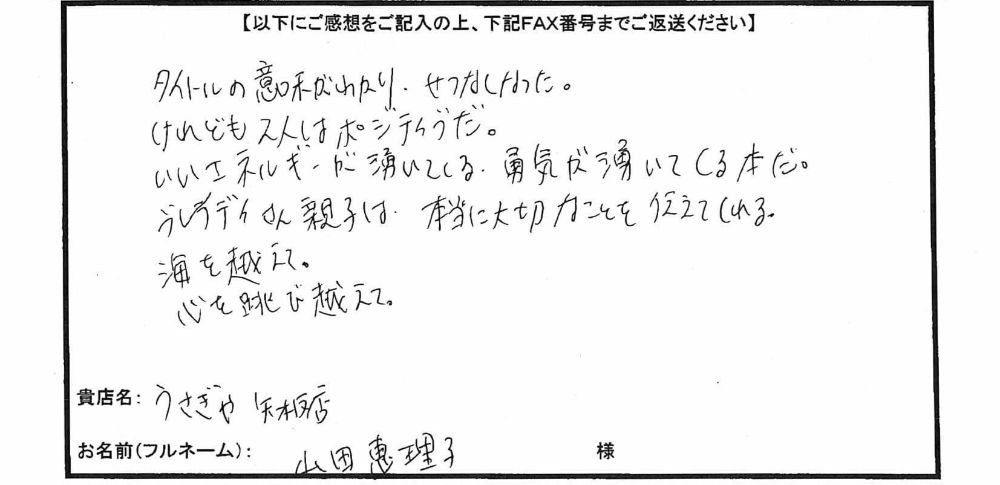 【以下にご感想をご記入の上、下記FAX番号までご返送ください】
タイトルの意味がわかり、せつなくなった。
けれども2人はポジティブだ。
いいエネルギーが湧いてくる、勇気が湧いてくる本だ。
ブレイディさん親子は、本当に大切なことを伝えてくれる。
海を越えて。
心を跳び越えて。
貴店名：うさぎや 矢板店
お名前（フルネーム）： 山田恵理子 様